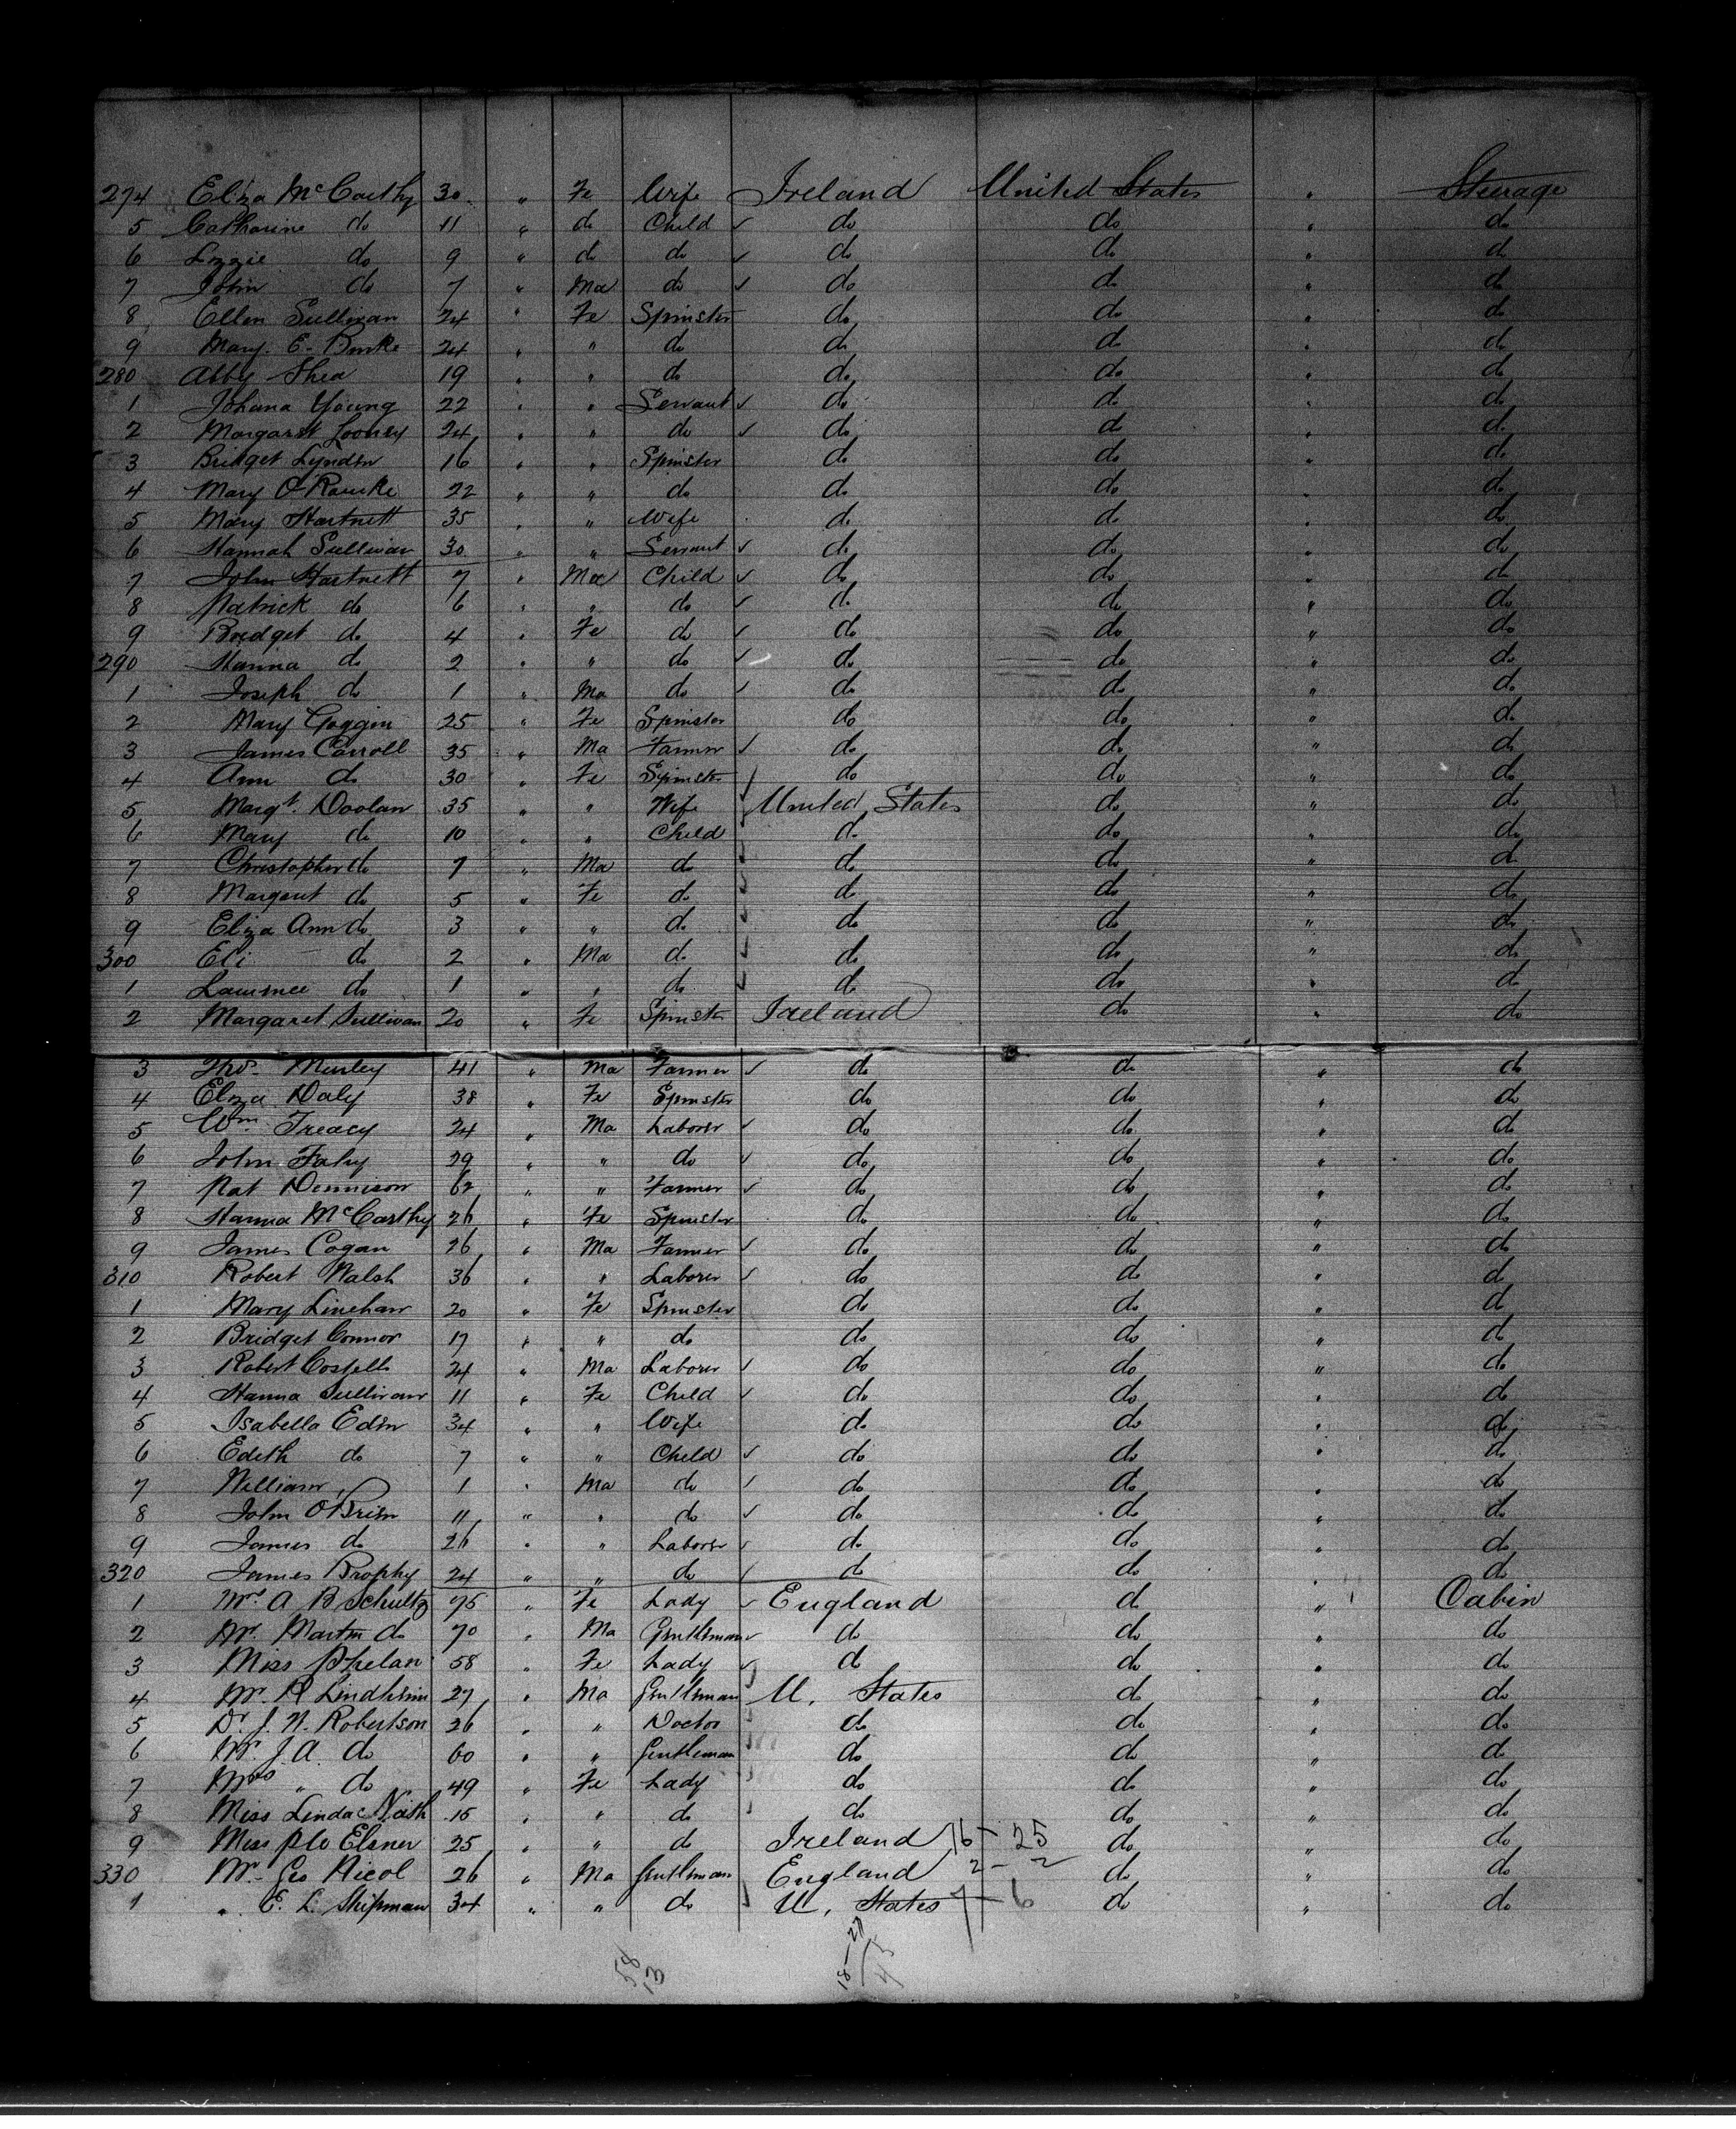 274 Eliza McCarthy 30 " Fe Wife Ireland United States " Steerage
5 Catharine do 11 " do Child ✓ do do " do
6 Lizzie do 9 " do do ✓ do do " do
7 John do 7 " Ma do ✓ do do " do
8 Ellen Sullivan 24 " Fe Spinster do do " do
9 Mary E. Burke 24 " " do do do " do
280 Abby Shea 19 " " do do do " do
1 Johana Young 22 " " Servant ✓ do do " do
2 Margaret Looney 24 " " do ✓ do do " do
3 Bridget Lynden 16 " " Spinster do do " do
4 Mary O'Rourke 22 " " do do do " do
5 Mary Hartnett 35 " " Wife do do " do
6 Hannah Sullivan 30 " " Servant ✓ do do " do
7 John Hartnett 7 " Ma Child ✓ do do " do
8 Patrick do 6 " " do ✓ do do " do
9 Bridget do 4 " Fe do ✓ do do " do
290 Hanna do 2 " " do ✓ do do " do
1 Joseph do 1 " Ma do ✓ do do " do
2 Mary Goggin 25 " Fe Spinster do do " do
3 James Carroll 35 " Ma Farmer ✓ do do " do
4 Ann do 30 " Fe Spinster do do " do
5 Margt. Doolan 35 " " Wife United States do " do
6 Mary do 10 " " Child do do " do
7 Christopher do 7 " Ma do do do " do
8 Margaret do 5 " Fe do do do " do
9 Eliza Ann do 3 " " do do do " do
300 Eli do 2 " Ma do do do " do
1 Lawrence do 1 " " do do do " do
2 Margaret Sullivan 20 " Fe Spinster Ireland do " do
3 Thos. 41 " Ma Farmer ✓ do do " do
4 Eliza Daly 38 " Fe Spinster do do " do
5 Wm Treacy 24 " Ma Laborer ✓ do do " do
6 John Fahy 29 " " do ✓ do do " do
7 Pat Dennison 62 " " Farmer ✓ do do " do
8 Hanna McCarthy 26 " Fe Spinster do do " do
9 James Cogan 26 " Ma Farmer ✓ do do " do
310 Robert Walsh 36 " " Laborer ✓ do do " do
1 Mary Linehan 20 " Fe Spinster do do " do
2 Bridget Connor 17 " " do do do " do
3 Robert Costello 24 " Ma Laborer ✓ do do " do
4 Hanna Sullivan 11 " Fe Child ✓ do do " do
5 Isabella Eden 34 " " Wife do do " do
6 Edith do 7 " " Child ✓ do do " do
7 William " 1 " Ma do ✓ do do " do
8 John O'Brien 11 " " do ✓ do do " do
9 James do 26 " " Laborer ✓ do do " do
320 James Brophy 24 " " do ✓ do do " do
1 Mrs A B Schultz 75 " Fe Lady ✓ England do " Cabin
2 Mr. Martin do 70 " Ma Gentleman ✓ do do " do
3 Miss Phelan 58 " Fe Lady ✓ do do " do
4 Mr. R Lindheim 27 " Ma Gentleman U. States do " do
5 Dr. J. N. Robertson 26 " " Doctor do do " do
6 Mr. J. A. do 60 " " Gentleman do do " do
7 Mrs " do 49 " Fe Lady do do " do
8 Miss Linda 15 " " do do do " do
9 Miss Elsner 25 " " do Ireland 16 - 25 do " do
330 Mr. Geo Nicol 26 " Ma Gentleman England 2 - 2 do " do
1 " E. L. Shipman 34 " " do U. States 7 - 6 do " do
58
13
18 - 27